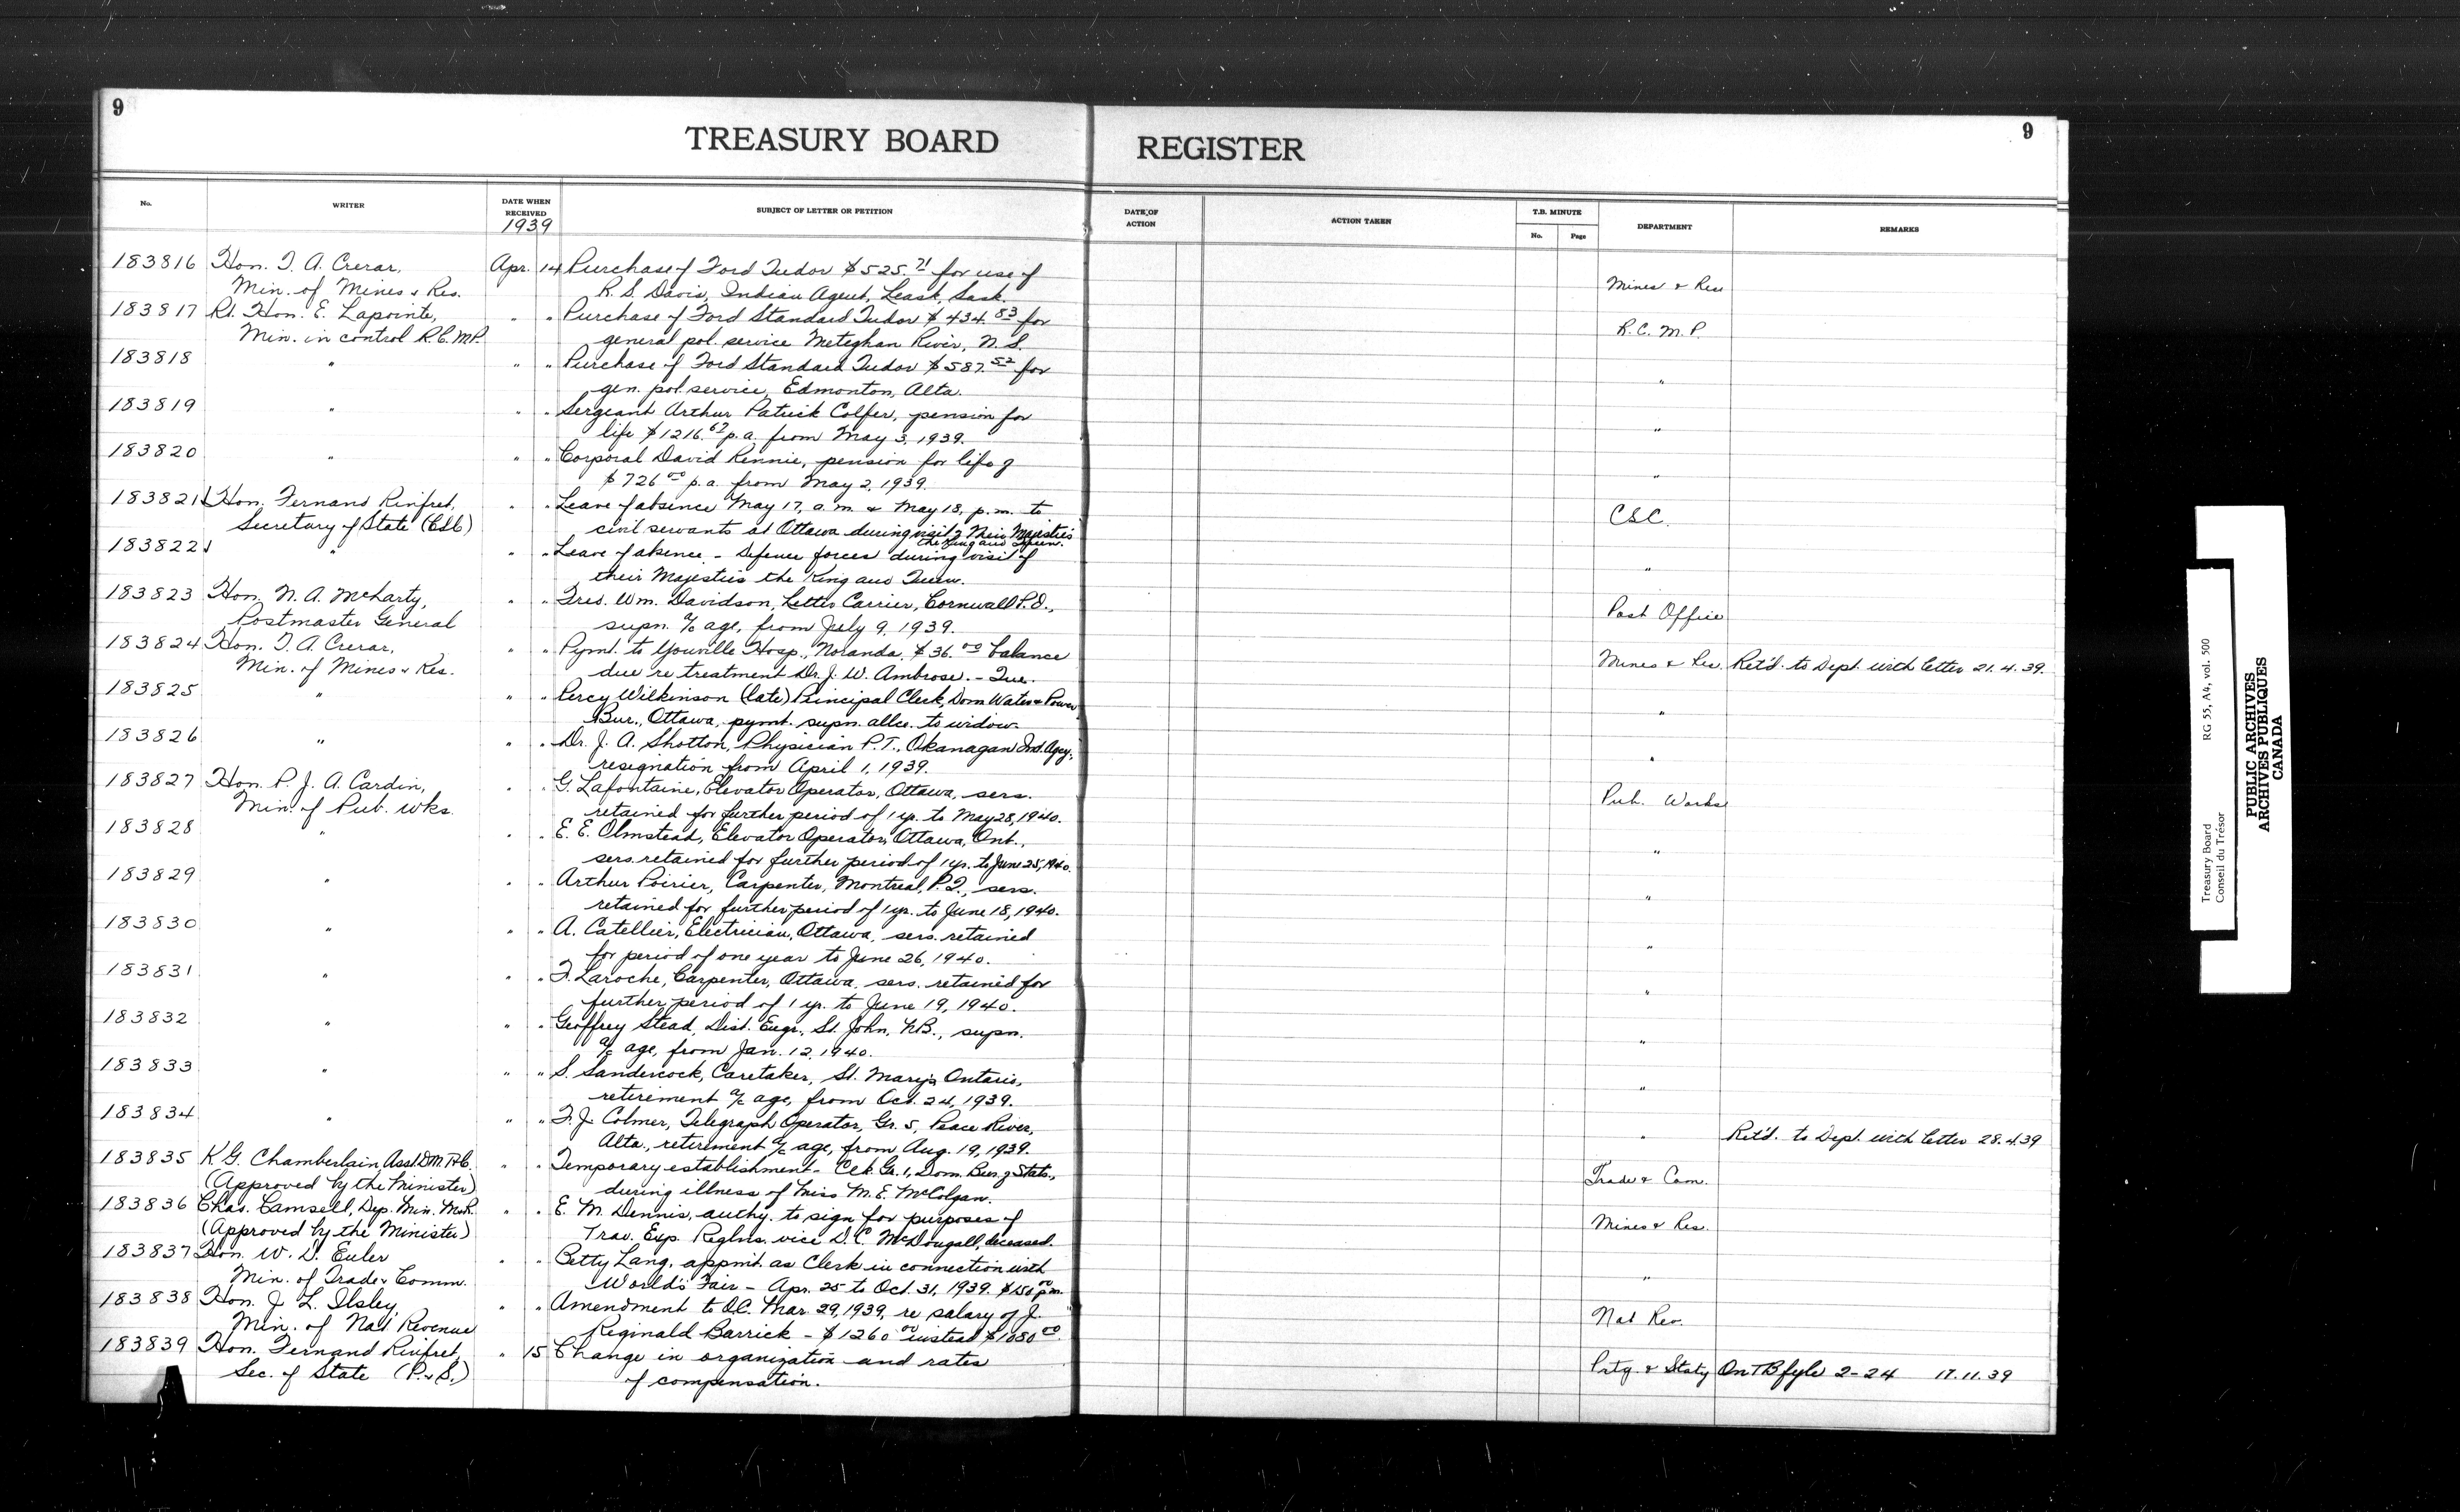 9
9
TREASURY BOARD REGISTER
No.
WRITER
DATE WHEN RECEIVED
1939
SUBJECT OF LETTER OR PETITION
DATE OF ACTION
ACTION TAKEN
T.B. MINUTE
No.
Page
DEPARTMENT
REMARKS
183816 Hon. T. A. Crerar, Apr. 14 Purchase of Ford Tudor $525.71 for use of
Min. of Mines & Res. R. S. Davis, Indian Agent, Leask, Sask. Mines & Res
183817 Rt. Hon. E. Lapointe, " " Purchase of Ford Standard Tudor $434.83 for
Min. in control R.C.M.P. general pol. service Meteghan River, N.S. R.C.M.P.
183818 " " " Purchase of Ford Standard Tudor $587.52 for
gen. pol. service, Edmonton, Alta. "
183819 " " " Sergeant Arthur Patrick Colfer, pension for
life $1216.67 p.a. from May 3, 1939. "
183820 " " " Corporal David Rennie, pension for life of
$726.00 p.a. from May 2, 1939. "
183821 Hon. Fernand Rinfret, " " Leave of absence May 17, a.m. & May 18, p.m. to
Secretary of State (CSC) civil servants at Ottawa during visit of Their Majesties CSC.
the King and Queen.
183822 " " " Leave of absence - Defence forces during visit of
their Majesties the King and Queen. "
183823 Hon. N. A. McLarty, " " Fres. Wm. Davidson, Letter Carrier, Cornwall P.O.,
Postmaster General supn. a/c age, from July 9, 1939. Post Office
183824 Hon. T. A. Crerar, " " Pymt. to Youville Hosp., Noranda, $36.00 balance
Min. of Mines & Res. due re treatment Dr. J. W. Ambrose. - Que. Mines & Res. Ret'd. to Dept. with letter 21.4.39.
183825 " " " Percy Wilkinson (late) Principal Clerk, Dom Water & Power
Bur., Ottawa, pymt. supn. allce. to widow. "
183826 " " " Dr. J. A. Shotton, Physician P.T., Okanagan Ind. Agcy.,
resignation from April 1, 1939. "
183827 Hon. P. J. A. Cardin, " " G. Lafontaine, Elevator Operator, Ottawa, sers.
Min. of Pub. Wks. retained for further period of 1 yr. to May 28, 1940. Pub. Works
183828 " " " E. E. Olmstead, Elevator Operator, Ottawa, Ont.,
sers. retained for further period of 1 yr. to June 25, 1940. "
183829 " " " Arthur Poirier, Carpenter, Montreal, P.Q., sers.
retained for further period of 1 yr. to June 18, 1940. "
183830 " " " A. Catellier, Electrician, Ottawa, sers. retained
for period of one year to June 26, 1940. "
183831 " " " F. Laroche, Carpenter, Ottawa, sers. retained for
further period of 1 yr. to June 19, 1940. "
183832 " " " Geoffrey Stead, Dist. Engr., St. John, N.B., supn.
a/c age, from Jan. 12, 1940. "
183833 " " " S. Sandercock, Caretaker, St. Mary's Ontario,
retirement a/c age, from Oct. 24, 1939. "
183834 " " " F. J. Colmer, Telegraph Operator, Gr. 5, Peace River,
Alta., retirement a/c age, from Aug. 19, 1939. " Ret'd. to Dept. with letter 28.4.39
183835 K. G. Chamberlain, Asst. D.M. T&C. " " Temporary establishment - Clk. Gr. 1, Dom. Bur. of Stats.,
(Approved by the Minister) during illness of Miss M. E. McColgan. Trade & Com.
183836 Chas. Camsell, Dep. Min. M&R. " " E. M. Dennis, authy. to sign for purposes of
(Approved by the Minister) Trav. Exp. Reglns. vice D. C. McDougall, deceased. Mines & Res.
183837 Hon. W. D. Euler " " Betty Lang, appmt. as Clerk in connection with
Min. of Trade & Comm. World's Fair - Apr. 25 to Oct. 31, 1939. $150.00 p.m. "
183838 Hon. J. L. Ilsley, " " Amendment to O.C. Mar. 29, 1939, re salary of J.
Min. of Nat. Revenue Reginald Barrick - $1260.00 instead $1080.00. Nat Rev.
183839 Hon. Fernand Rinfret, " 15 Change in organization and rates
Sec. of State (P.&S.) of compensation. Prtg. & Staty On TB fyle 2-24 17.11.39
Treasury Board RG 55, A4, vol. 500
Conseil du Trésor
PUBLIC ARCHIVES
ARCHIVES PUBLIQUES
CANADA